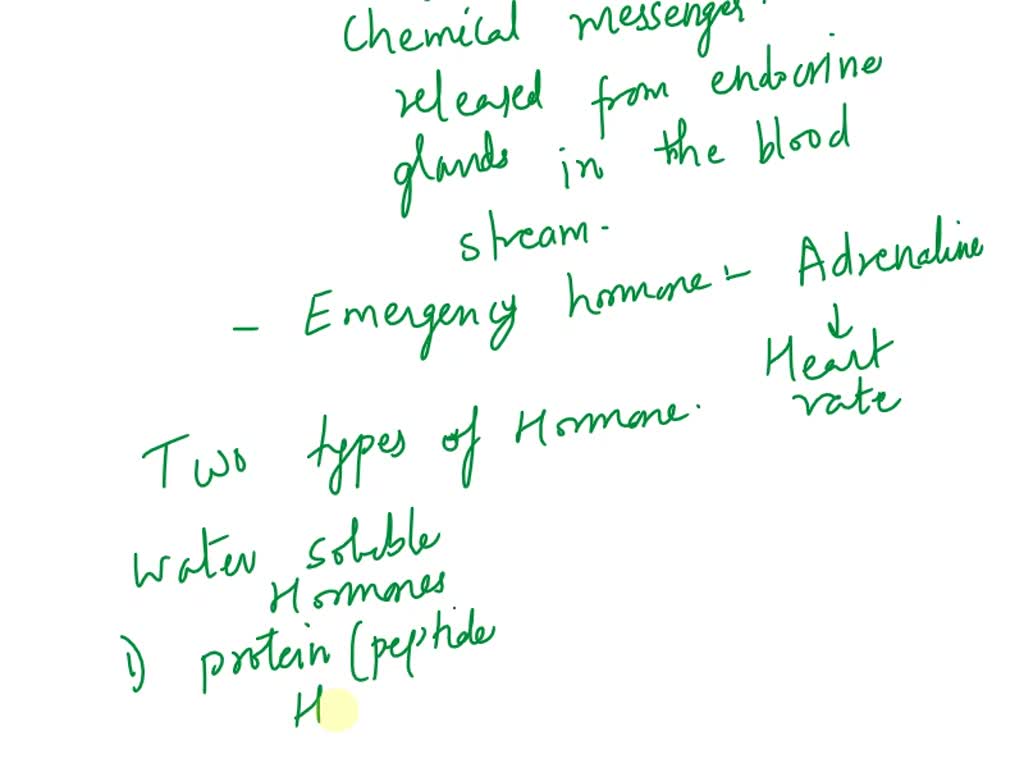 Chemical messenger.
released from endocrine
glands in the blood
stream.
- Emergency hormone :- Adrenaline
↓
Heart
rate
Two types of Hormone.
Water soluble
Hormones
1) protein (peptide
H